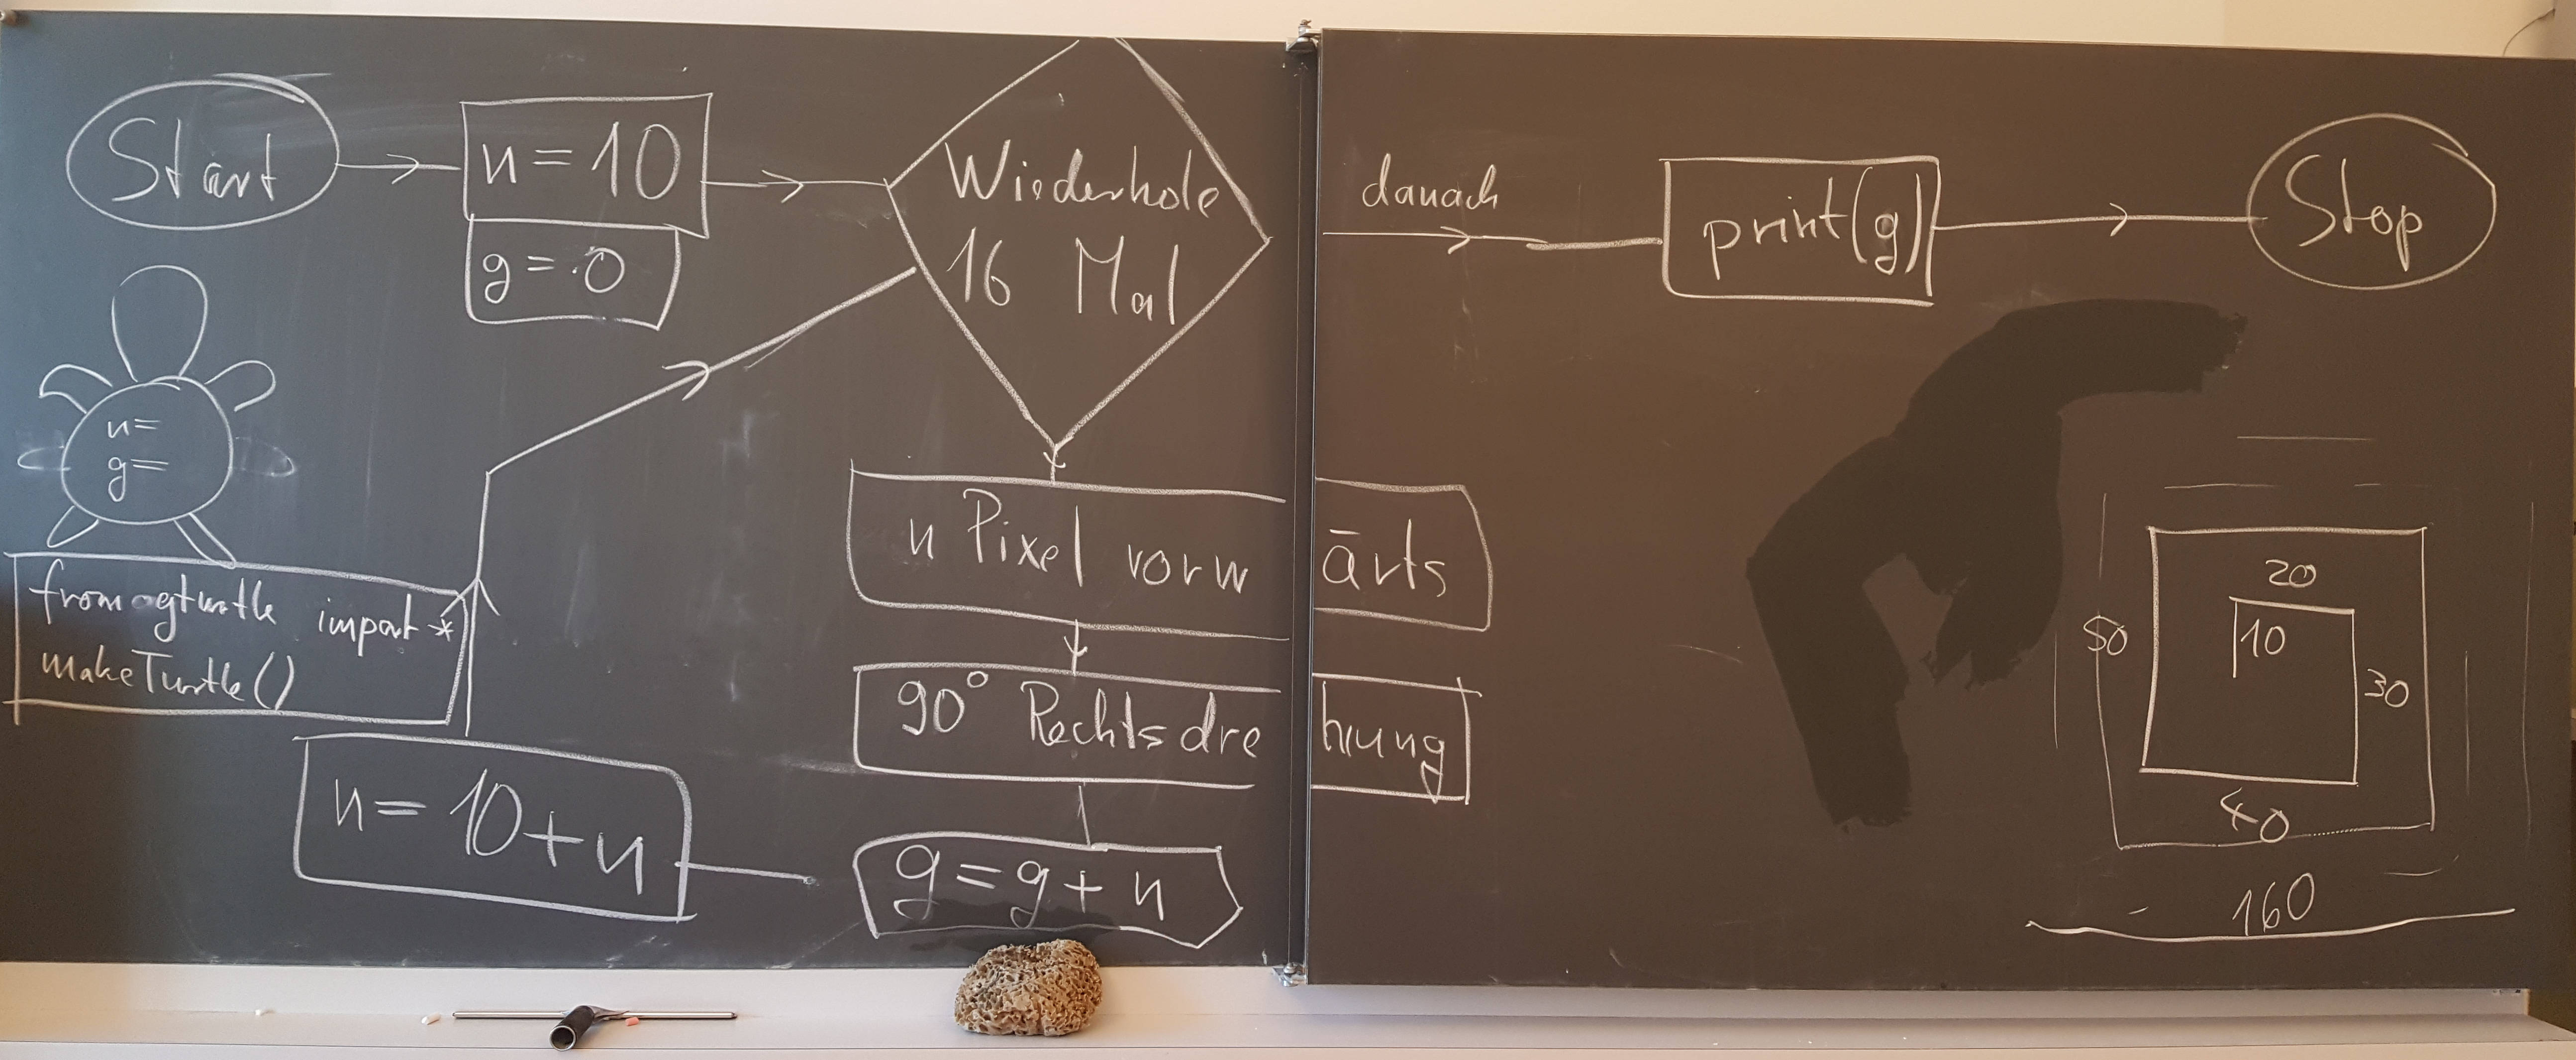 Start
n = 10
g = 0
Wiederhole
16 Mal
danach
print(g)
Stop
n =
g =
from gturtle import *
makeTurtle()
n Pixel vorwärts
90° Rechtsdrehung
g = g + n
n = 10 + n
20
10
50
30
40
160